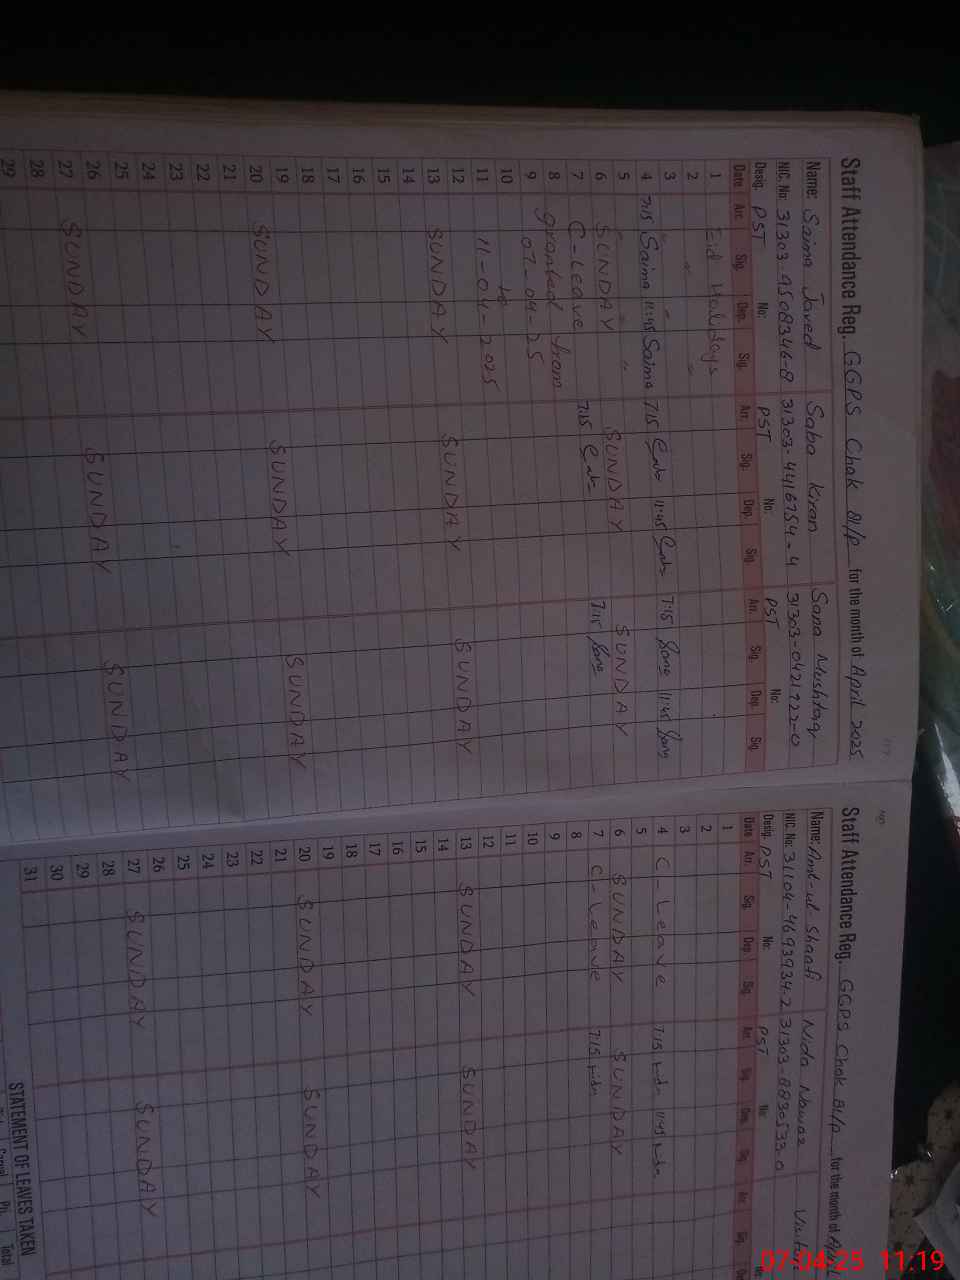 Staff Attendance Reg. GGPS Chak 81/P for the month of April 2025
Name: Saima Javed Saba Kiran Sana Mushtaq
NIC. No: 31303-9508346-8 31303-4416754-4 31303-0421922-0
Desig. PST No: PST No: PST No:
Date Arr. Sig. Dep. Sig. Arr. Sig. Dep. Sig. Arr. Sig. Dep. Sig.
1 Eid Holidays
2
3
4 7:15 Saima 11:45 Saima 7:15 11:45 7:15 11:45
5
6 SUNDAY SUNDAY SUNDAY
7 C-Leave 7:15 7:15
8 granted from
9 07-04-25
10 to
11 11-04-2025
12
13 SUNDAY SUNDAY SUNDAY
14
15
16
17
18
19
20 SUNDAY SUNDAY SUNDAY
21
22
23
24
25
26
27 SUNDAY SUNDAY SUNDAY
28
29
Staff Attendance Reg. GGPS Chak 81/P for the month of
Name: Amt-ul Shaafi Nida Nawaz
NIC. No: 31104-4693934-2 31303-8830533-0
Desig. PST No: PST No:
Date Arr. Sig. Dep. Sig. Arr. Sig. Dep. Sig. Arr. Sig.
1
2
3
4 C-Leave 7:15 11:45
5
6 SUNDAY SUNDAY
7 C-Leave 7:15
8
9
10
11
12
13 SUNDAY SUNDAY
14
15
16
17
18
19
20 SUNDAY SUNDAY
21
22
23
24
25
26
27 SUNDAY SUNDAY
28
29
30
31
STATEMENT OF LEAVES TAKEN
Casual Pri. Total
07-04-25 11:19